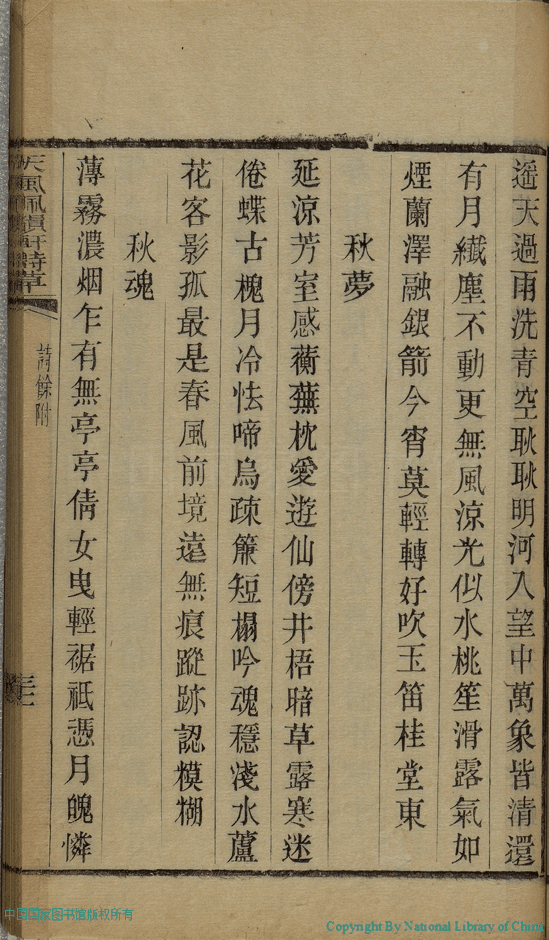 遥天過雨洗青空耿耿明河入望中萬象皆清還
有月纖塵不動更無風涼光似水桃笙滑露氣如
煙蘭澤融銀箭今宵莫輕轉好吹玉笛桂堂東
秋夢
延涼芳室感蘅蕪枕愛遊仙傍井梧暗草露寒迷
倦蝶古槐月冷怯啼烏疎簾短榻吟魂穩淺水蘆
花客影孤最是春風前境遠無痕蹤跡認模糊
秋魂
薄霧濃烟乍有無亭亭倩女曳輕裾祗憑月魄憐
天風佩韻軒詩草
詩餘附
中国国家图书馆版权所有
Copyright By National Library of China